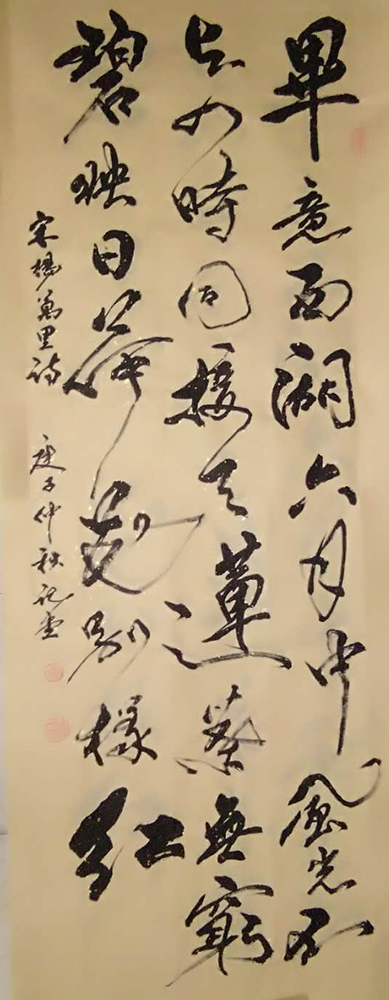 畢竟西湖六月中風光不
与四時同接天蓮葉無窮
碧映日荷花別樣紅
宋楊萬里詩 庚子仲秋